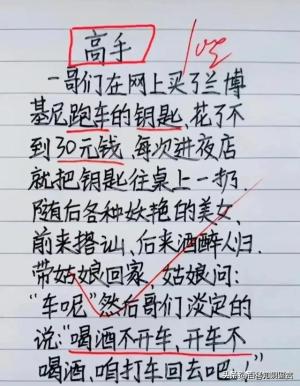 高手
一哥们在网上买了兰博
基尼跑车的钥匙，花了不
到30元钱，每次进夜店
就把钥匙往桌上一扔，
随后各种妖艳的美女，
前来搭讪，后来酒醉人归，
带姑娘回家，姑娘问：
“车呢”然后哥们淡定的
说：“喝酒不开车，开车不
喝酒，咱打车回去吧！”